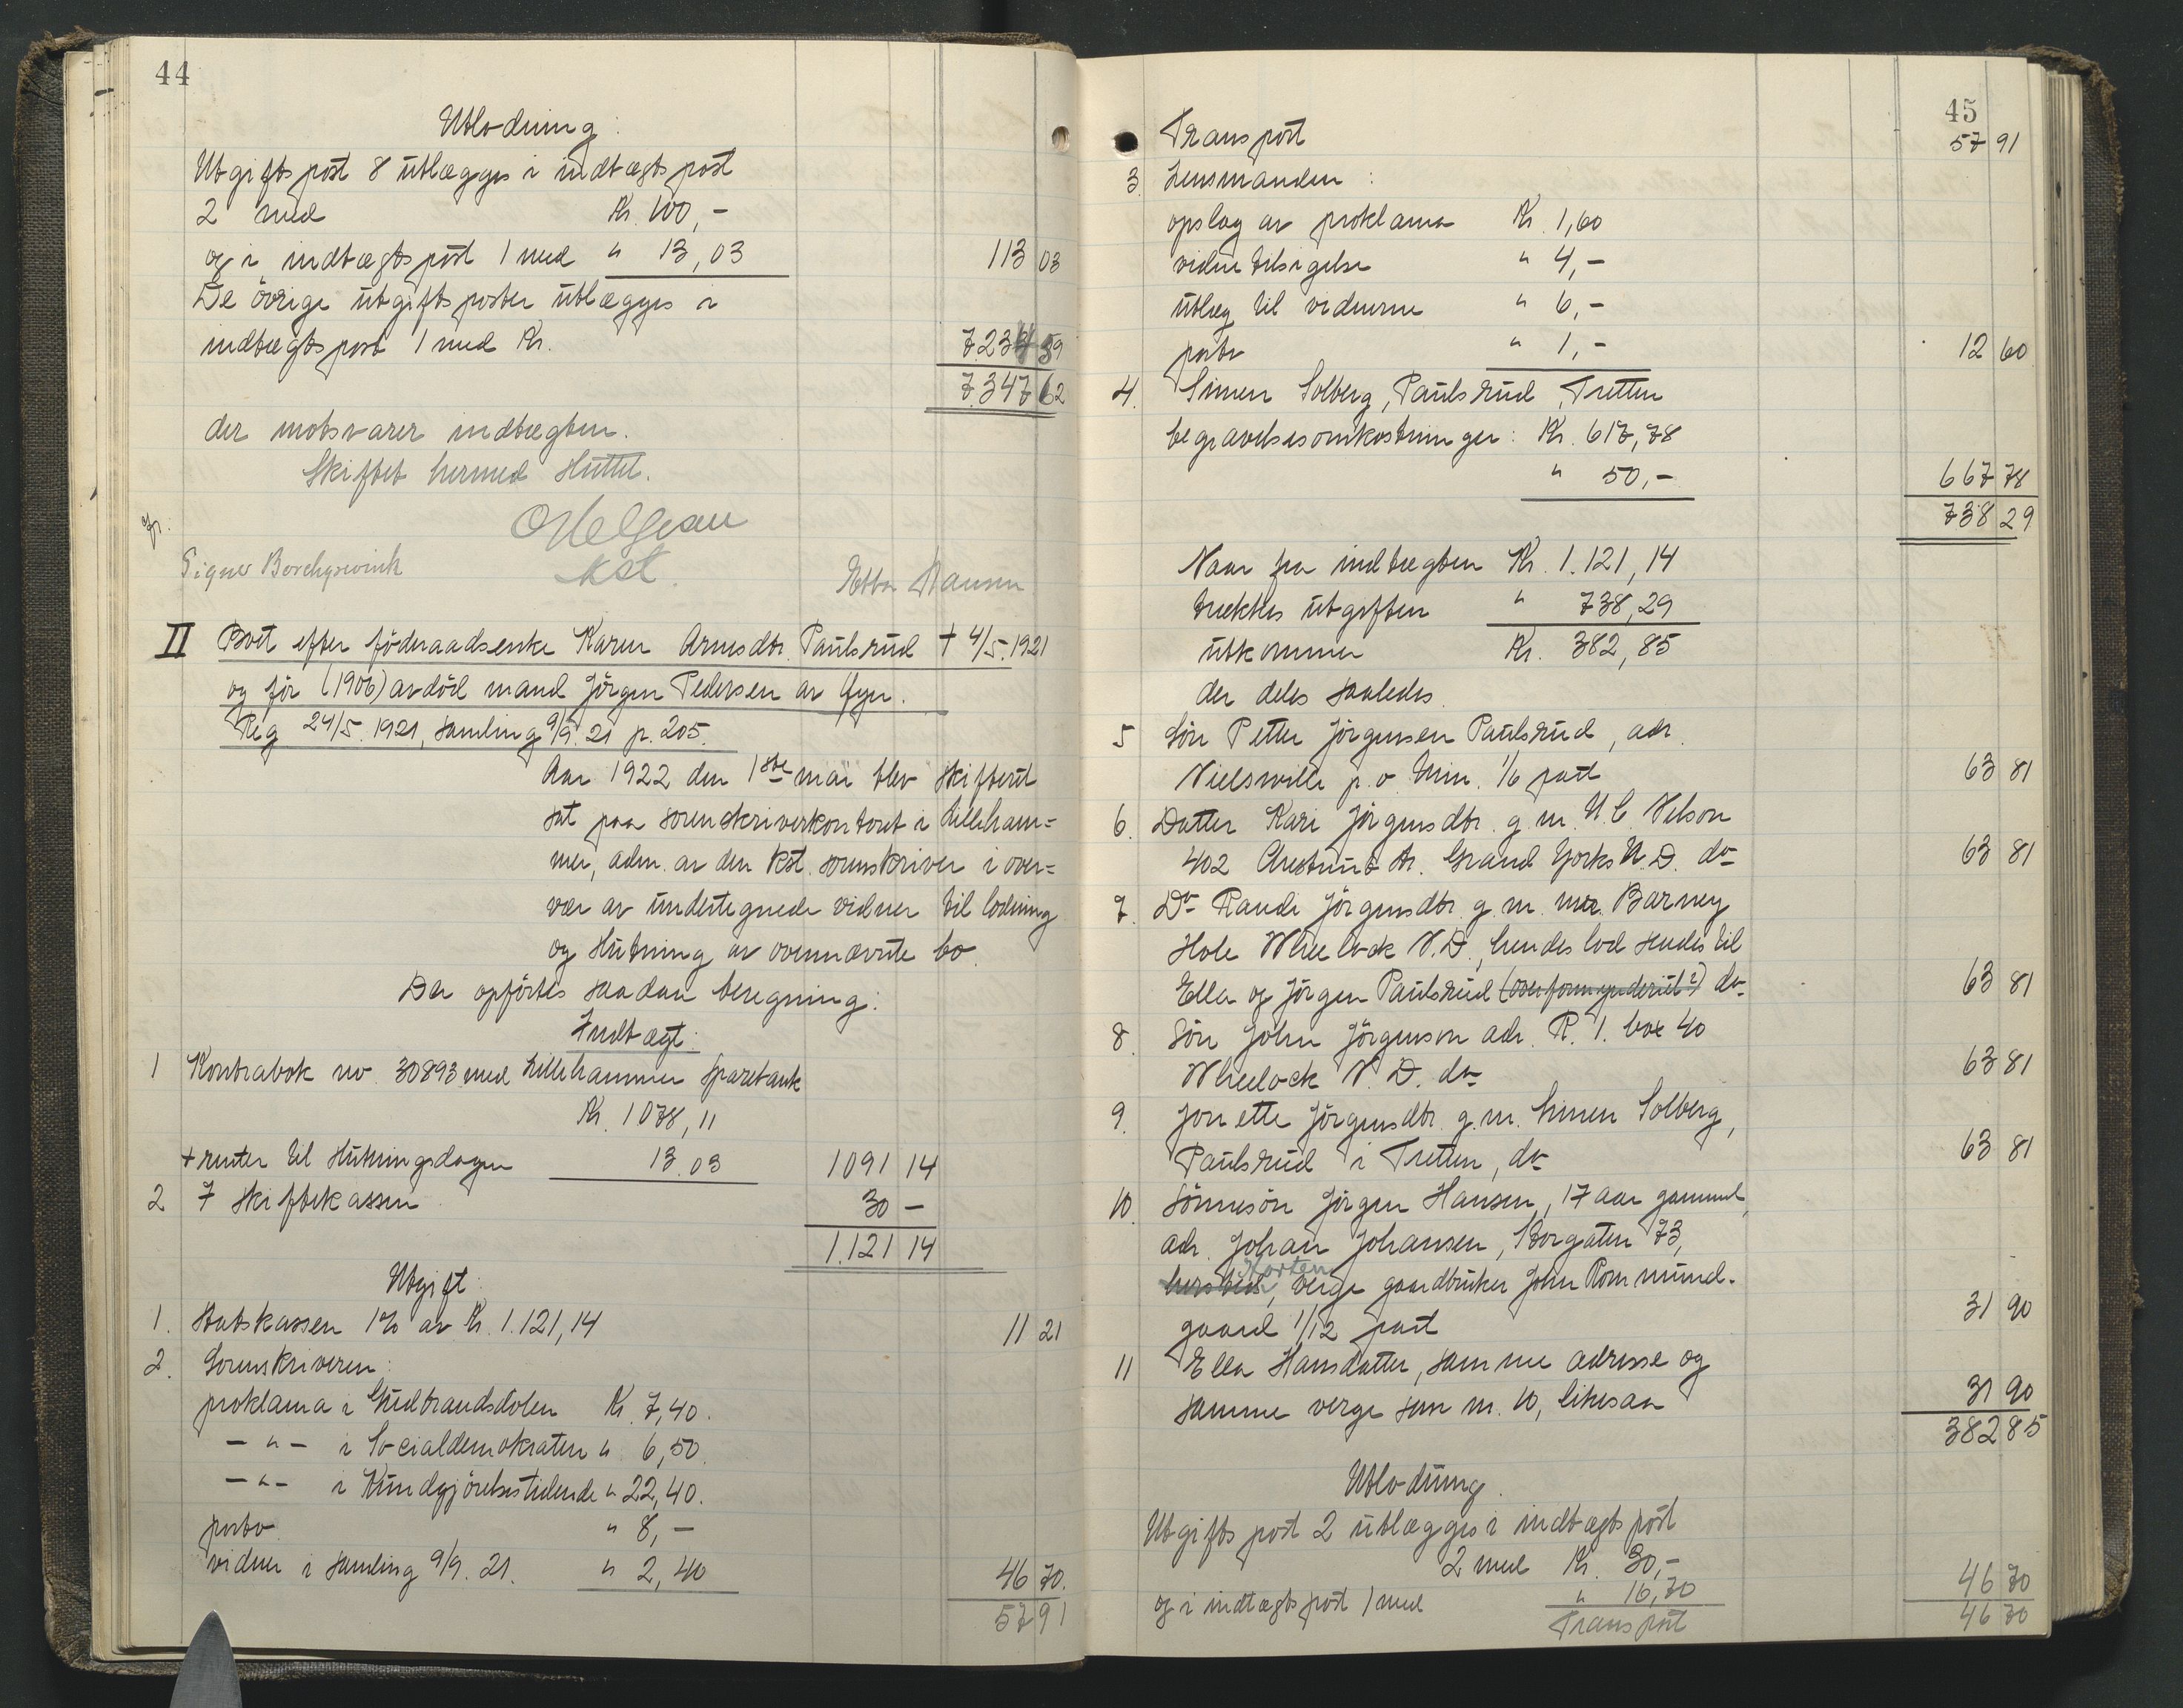 44
Utlodning:
Utgiftspost 8 utlægges i indtægtspost
2 med Kr. 100,-
og i indtægtspost 1 med " 13,03 113 03
De övrige utgiftsposter utlægges i
indtægtspost 1 med Kr. 7.234 59
7.347 62
der motsvarer indtægten.
Skiftet hermed sluttet.
Kst.
Signer Borchgrevink Ebba Hansen
II Boet efter föderaadsenke Karen Arnesdtr. Paulsrud + 4/5. 1921
og för (1906) avdöd mand Jörgen Pedersen av Öyer.
Reg 24/5. 1921, samling 9/9. 21 p. 205.
Aar 1922 den 1ste mai blev skifteret
sat paa sorenskriverkontoret i Lilleham=
mer, adm. av den kst. sorenskriver i over=
vær av undertegnede vidner til lodning
og slutning av ovennævnte bo.
Der opförtes saadan beregning:
Indtægt:
1 Kontrabok no. 30893 med Lillehammer Sparebank
Kr. 1078,11
+ renter til slutningsdagen 13.03 1091 14
2 I skiftekassen 30 -
1.121 14
Utgift:
1. Statskassen 1% av Kr. 1.121,14 11 21
2. Sorenskriveren:
proklama i Gudbrandsdolen Kr. 7,40.
- " - i Socialdemokraten " 6,50.
- " - i Kundgjörelsestidende " 22,40.
porto " 8,-
vidner i samling 9/9. 21. " 2,40 46 70.
57 91
45
Transport 57 91
3. Lensmanden:
opslag av proklama Kr. 1,60
vidnetilsigelse " 4,-
utlæg til vidnerne " 6,-
porto " 1,- 12 60
4. Simen Solberg, Paulsrud, Tretten
begravelsesomkostninger: Kr. 617,78
" 50,- 667 78
738 29
Naar fra indtægten Kr. 1.121,14
trækkes utgiften " 738,29
utkommer Kr. 382,85
der deles saaledes.
5 Sön Petter Jörgensen Paulsrud, adr.
Nielsville p. o. Min. 1/6 part 63 81
6. Datter Kari Jörgensdtr. g. m. N. C. Nelson
402 Chestnut Str. Grand Forks N. D. do 63 81
7. Do Randi Jörgensdtr. g. m. mr. Barney
Hole Wheelock N. D., hendes lod sendes til
Ella og Jörgen Paulsrud (overformynderiet?) do 63 81
8. Sön John Jörgenson adr. R. 1. box 40
Wheelock N. D. do 63 81
9. Jonette Jörgensdtr. g. m. Simen Solberg,
Paulsrud i Tretten, do 63 81
10. Sönnesön Jörgen Hansen, 17 aar gammel,
adr. Johan Johansen, Storgaten 73,
Horten
hersteds, verge gaardbruker John Rommund-
gaard 1/12 part 31 90
11 Ella Hansdatter, samme adresse og
samme verge som nr. 10, likesaa 31 90
382 85
Utlodning.
Utgiftspost 2 utlægges i indtægtspost
2 med Kr. 30,-
og i indtægtspost 1 med " 16,70 46 70
Transport 46 70